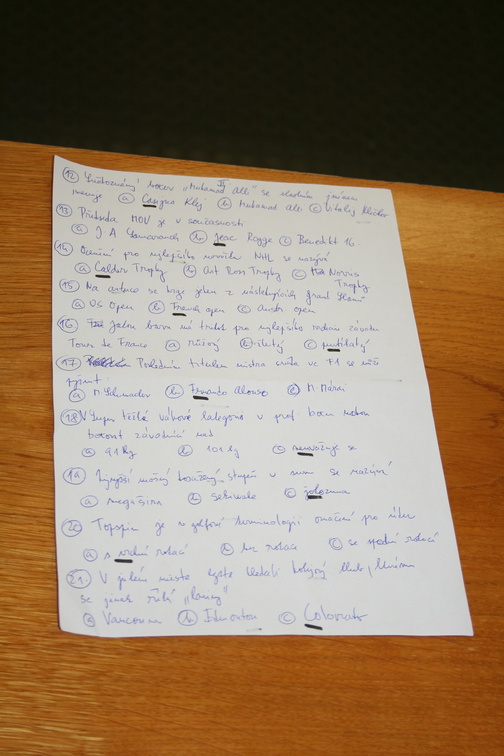 12 Světoznámý boxer „Muhamad Ali“ se vlastním jménem
jmenuje a Casius Klej b Muhamad ali c Vitalij Kličko
13 Předseda MOV je v současnosti
a J. A Samaranch b Jeac Rogge c Benedikt 16.
14. Ocenění pro nejlepšího nováčka NHL se nazývá
a Calder Trophy b Art Ross Trophy c Norris
Trophy
15 Na antuce se hraje jeden z následujících grand slamů
a US Open b French open c Austr. open
16. Jakou barvu má trikot pro nejlepšího vrchaře závodu
Tour de France a růžový b žlutý c puntíkatý
17. Posledním titulem mistra světa ve F1 se může
pyšnit
a M. Schumacher b Fernando Alonso c M.
18 V super těžké váhové kategorii v prof. boxu mohou
boxovat závodníci nad
a 91 kg b 101 kg c neuvažuje se
19 Nejvyšší možný dosažený stupeň v sumo se nazývá
a b c jokozuna
20 Topspin je v golfové terminologii označení pro úder
a s vrchní rotací b bez rotace c se spodní rotací
21. V jakém městě byste hledali hokejový klub, kterému
se jinak říká „laviny“
a Vancouver b Edmonton c Colorado